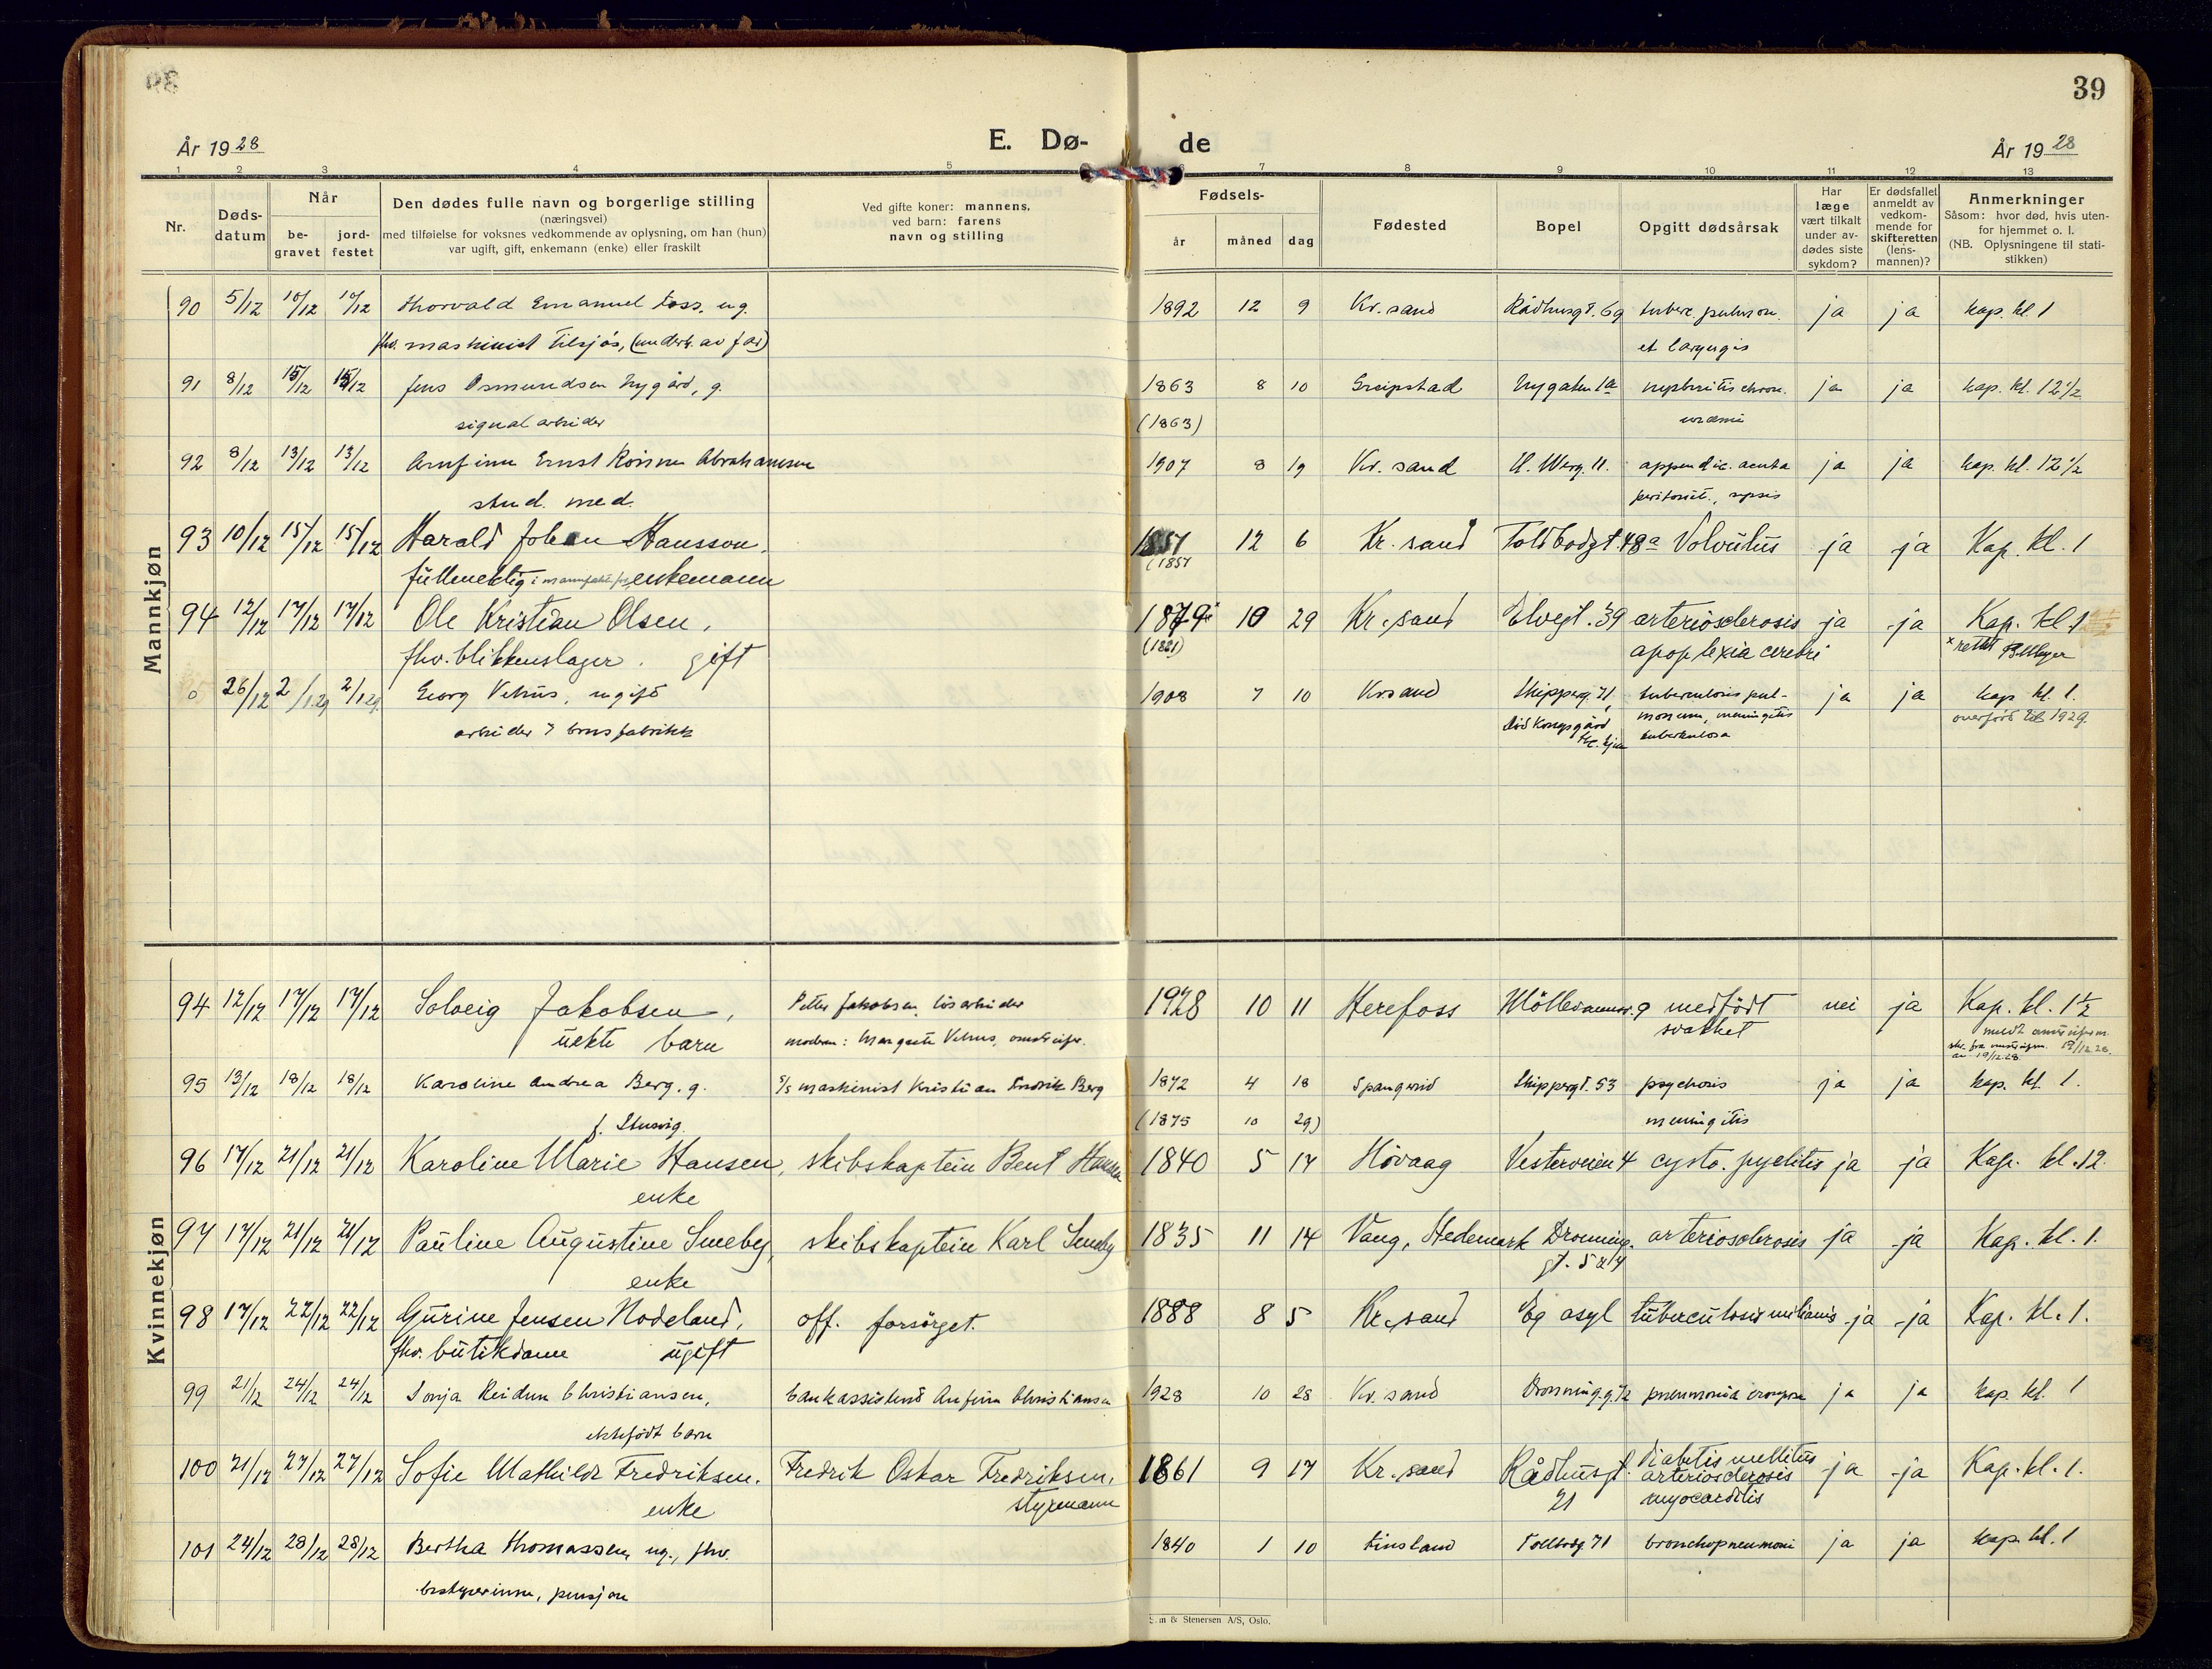 39
År 1928
E. Dø-
de
År 1928
1 2 3 4 5 6 7 8 9 10 11 12 13
Nr.
Døds-
datum
Når
be-
gravet
jord-
festet
Den dødes fulle navn og borgerlige stilling
(næringsvei)
med tilføielse for voksnes vedkommende av oplysning, om han (hun)
var ugift, gift, enkemann (enke) eller fraskilt
Ved gifte koner: mannens,
ved barn: farens
navn og stilling
Fødsels-
år
måned
dag
Fødested
Bopel
Opgitt dødsårsak
Har
læge
vært tilkalt
under av-
dødes siste
sykdom?
Er dødsfallet
anmeldt av
vedkom-
mende for
skifteretten
(lens-
mannen)?
Anmerkninger
Såsom: hvor død, hvis uten-
for hjemmet o. l.
(NB. Oplysningene til stati-
stikken)
Mannkjøn
90 5/12 10/12 10/12 Thorvald Emanuel Foss, ug. 1892 12 9 Kr.sand Rådhusgt. 69 tuberc. pulmon. ja ja kap. kl 1
fhv. maskinist tilsjøs, (underh. av far) et laryngis
91 8/12 15/12 15/12 Jens Osmundsen Nygård, g. 1863 8 10 Greipstad Nygaten 1a nephritis chron. ja ja kap. kl. 12 1/2
signalarbeider (1863) uræmi
92 8/12 13/12 13/12 Arnfinn Ernst Abrahamsen 1907 8 19 Kr. sand H. Werg. 11. appendic. acuta ja ja kap. kl. 12 1/2
stud. med. peritonit., sepsis
93 10/12 15/12 15/12 Harald Johan Hansson, 1857 12 6 Kr. sand Toldbodgt 48a Volvulus ja ja Kap. kl. 1
fullmektig i enkemann (1857
94 12/12 17/12 17/12 Ole Kristian Olsen, 1879x 10 29 Kr. sand Elvegt. 39 arteriosclerosis ja ja Kap. kl 1
fhv. blikkenslager. gift (1881) apoplexia cerebri x rettet
0 26/12 2/1.29 2/1.29. Georg Vehus, ugift 1908 7 10 Krsand Skipperg. 71, tuberculosis pul- ja ja kap kl. 1.
arbeider i brusfabrikk død Kongsgård monum, meningitis overført til 1929.
tuberkulosa
Kvinnekjøn
94 12/12 17/12 17/12 Solveig Jakobsen, Petter Jakobsen, løsarbeider 1928 10 11 Herefoss 9 medfødt nei ja Kap. kl. 1 1/2
uekte barn moderen: Margrete Vehus, svakhet
95 13/12 18/12 18/12 Karoline Andrea Berg. g. s/s maskinist Kristian Fredrik Berg 1872 4 18 Spangereid Skippergt. 53 psychosis ja ja kap. kl. 1.
(1875 10 29) meningitis
96 17/12 21/12 21/12 Karoline Marie Hansen, skibskaptein Bent Hansen 1840 5 17 Høvaag Vesterveien 4 cysto. pyelitis ja ja Kap. kl. 12.
enke
97 17/12 21/12 21/12 Pauline Augustine Smeby, skibskaptein Karl Smeby 1835 11 14 Vang, Hedemark Dronning. arteriosclerosis ja ja Kap. kl. 1.
enke
98 17/12 22/12 22/12 Gurine Jensen Nodeland, off. forsørget. 1888 8 5 Kr. sand Eg asyl tuberculosis miliaris ja ja Kap. kl. 1.
fhv. butikdame ugift
99 21/12 24/12 24/12 Sonja Reidun Christiansen, bankassistent Arnfinn Christiansen 1928 10 28 Kr. sand pneumonia crouposa ja ja kap. kl. 1
ektefødt barn
100 21/12 27/12 27/12 Sofie Mathilde Fredriksen. Fredrik Oskar Fredriksen, 1861 9 17 Kr. sand Rådhusgt. diabetis mellitus ja ja Kap. kl. 1.
enke styrmann 21 arteriosclerosis
myocarditis
101 24/12 28/12 28/12 Bertha Thomassen, ug., fhv. 1840 1 10 Finsland Tollbodg. 71 bronchopneumoni ja ja kap. kl. 1
bestyrerinne, pensjon
& Stenersen A/S, Oslo.